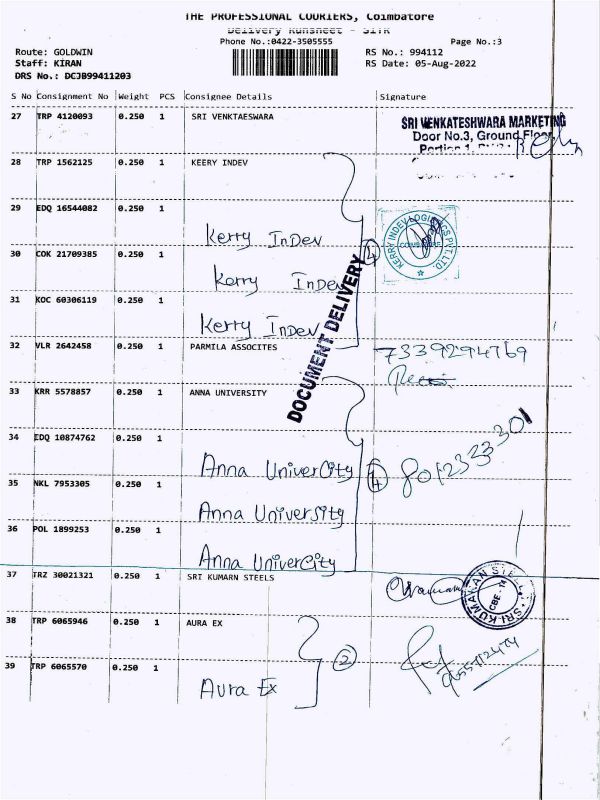 THE PROFESSIONAL COURIERS, Coimbatore
Delivery Runsheet - SITR
Phone No.:0422-3505555 Page No.:3
Route: GOLDWIN RS No.: 994112
Staff: KIRAN RS Date: 05-Aug-2022
DRS No.: DCJB99411203
S No Consignment No Weight PCS Consignee Details Signature
27 TRP 4120093 0.250 1 SRI VENKTAESWARA
SRI VENKATESHWARA MARKETING
Door No.3, Ground Floor
Portion 1,
28 TRP 1562125 0.250 1 KEERY INDEV
29 EDQ 16544082 0.250 1
Kerry InDev
KERRY INDEV LOGISTICS PVT.LTD
COIMBATORE
4
30 COK 21709385 0.250 1
Kerry InDev
31 KOC 60306119 0.250 1
Kerry InDev
DOCUMENT DELIVERY
32 VLR 2642458 0.250 1 PARMILA ASSOCITES 7339294769
33 KRR 5578857 0.250 1 ANNA UNIVERSITY
34 EDQ 10874762 0.250 1
Anna UniverCity 4 8012333301
35 NKL 7953305 0.250 1
Anna UniverSity
36 POL 1899253 0.250 1
Anna UniverCity
37 TRZ 30021321 0.250 1 SRI KUMARN STEELS
SRI KUMARAN STE
CBE - 14
38 TRP 6065946 0.250 1 AURA EX
2
39 TRP 6065570 0.250 1
Aura Ex